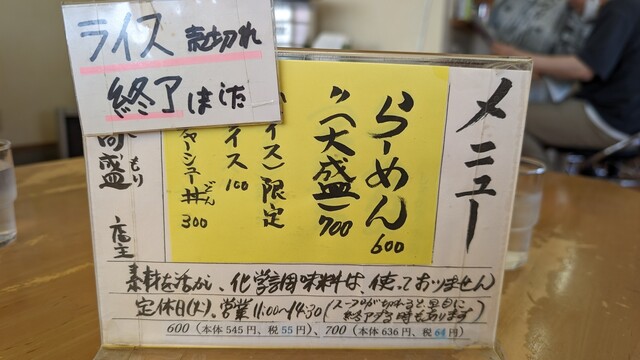 ライス売切れ
終了しました
メニュー
らーめん 600
〃(大盛) 700
イス)限定
イス 100
チャーシュー丼 300
どん
盛 店主
もり
素材を活かし、化学調味料は、使っておりません
定休日(火)、営業11:00~14:30(スープが切れると早目に終了する時もあります)
600(本体545円、税55円)、700(本体636円、税64円)